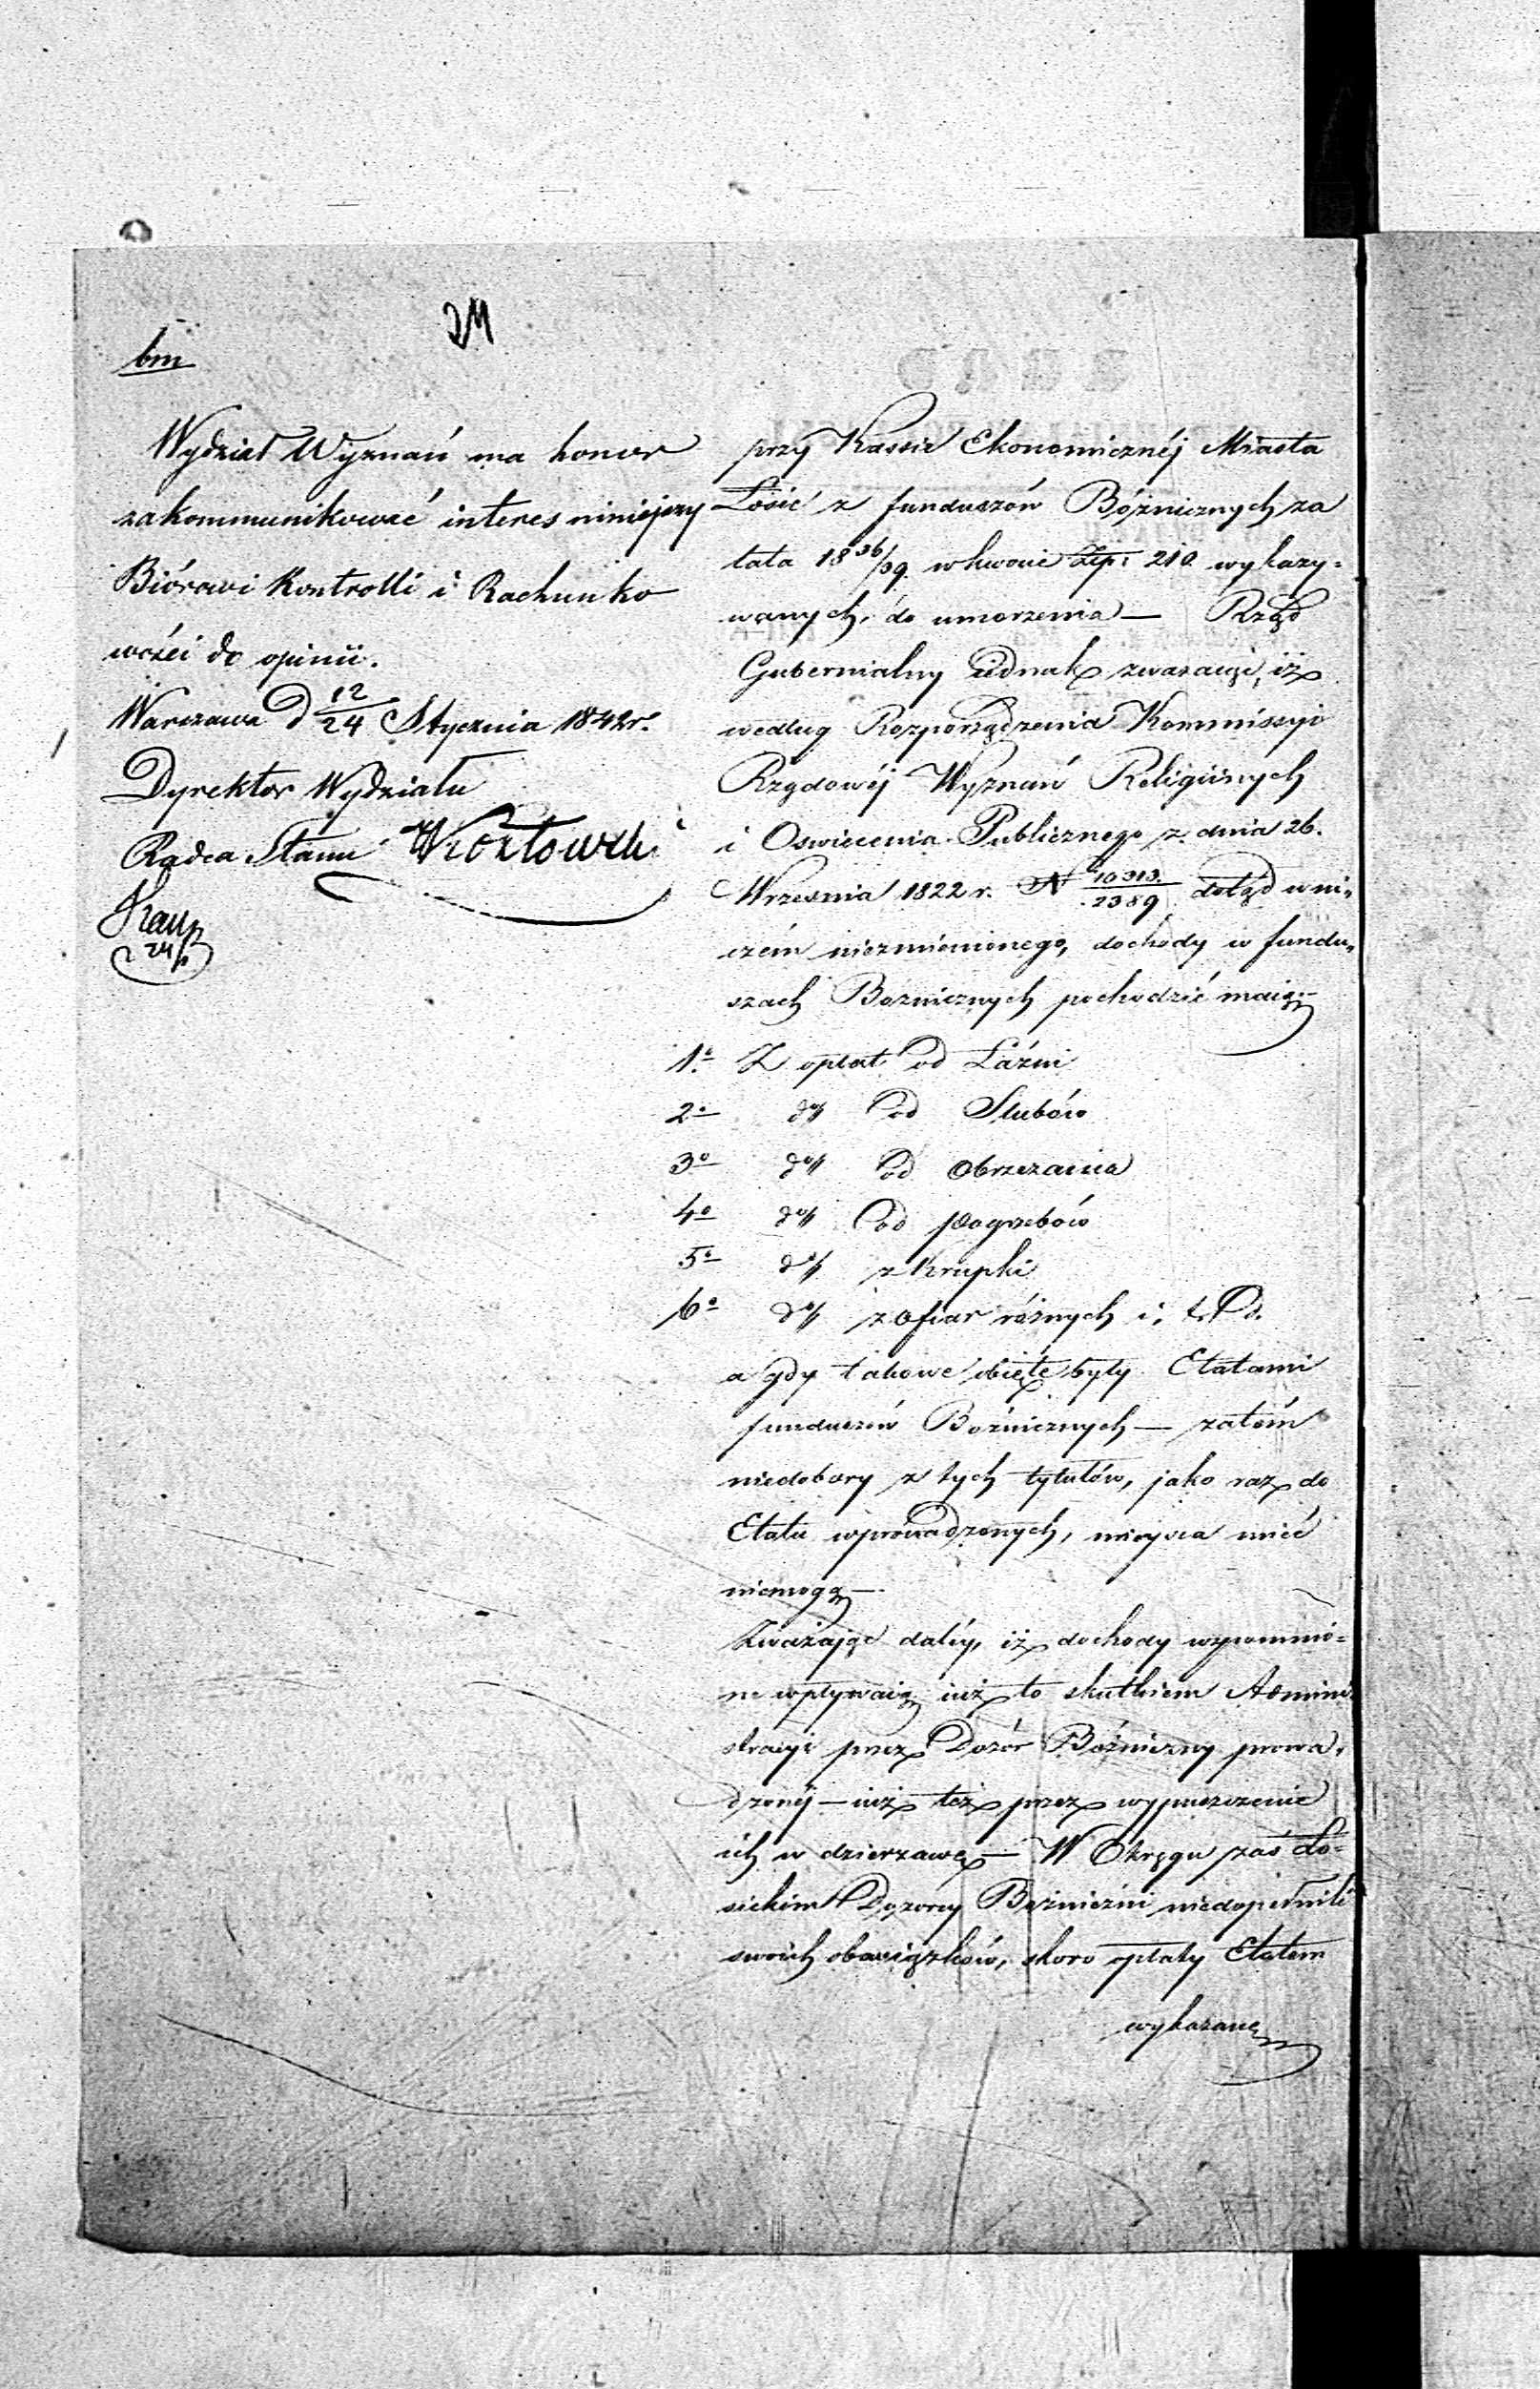 bm
Wydział Wyznań ma honor
zakommunikować interes niniejszy
Biórowi Kontrolli i Rachunko
wości do opinii.
Warszawa d 12/24 Stycznia 1842 r.
Dyrektor Wydziału
Radca Stanu
24/
przy Kassie Ekonomicznéj Miasta
Łosic z funduszów Bóżnicznych za
lata 18 36/39. w kwocie Złp: 210. wykazy=
wanych, do umorzenia — Rząd
Gubernialny jednak zważając, iż
według Rozporządzenia Kommissyi
Rządowéj Wyznań Religijnych
i Oswiecenia Publicznego z dnia 26.
Wrzesnia 1822 r. N 10313./2389 dotąd w ni„
czém niezmienionego, dochody w fundu„
szach Boznicznych pochodzić maią
1o Z opłat od Łázni
2o do od Slubów
3o do od Obrzezania
4o do od pogrzebów
5o do z Krupki
6o do z Ofiar różnych i; t. d.
a gdy takowe obięte były Etatami
funduszów Bożnicznych — zatém
niedobory z tych tytułów, jako raz do
Etatu wprowadzonych, mieysca mieć
niemogą —
Zważając daléy, iż dochody wspomnio=
ne wpływaią iuż to skutkiem Admini
stracyi przez Dozór Bóżniczny prowa„
dzonéj — iuż też przez wypuszczenie
ich w dzierzawę — W Okręgu zaś Ło=
sickim Dozorcy Bożniczni niedopełnili
swoich obowiązków, skoro opłaty Etatem
wykazane